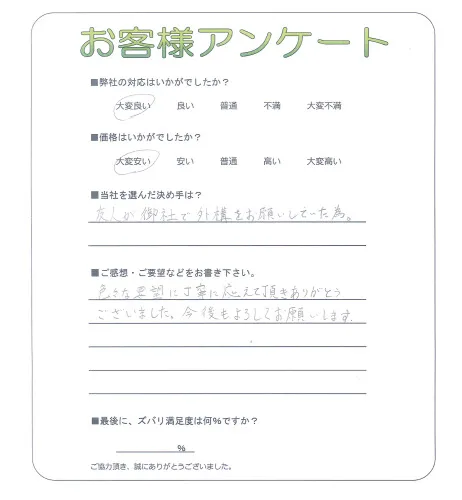 お客様アンケート
■弊社の対応はいかがでしたか？
大変良い 良い 普通 不満 大変不満
■価格はいかがでしたか？
大変安い 安い 普通 高い 大変高い
■当社を選んだ決め手は？
友人が御社で外構をお願いしていた為。
■ご感想・ご要望などをお書き下さい。
色々な要望に丁寧に応えて頂きありがとう
ございました。今後もよろしくお願いします。
■最後に、ズバリ満足度は何％ですか？
％
ご協力頂き、誠にありがとうございました。